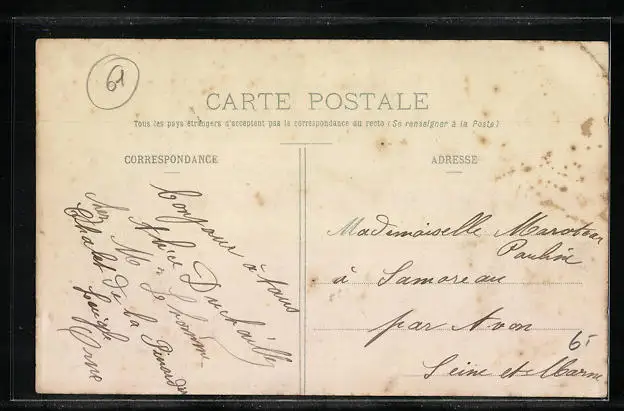 61
CARTE POSTALE
Tous les pays étrangers n'acceptent pas la correspondance au recto (Se renseigner à la Poste)
CORRESPONDANCE
Bonjour à tous
Alice
chez M
Chalet de la
Orne
ADRESSE
Mademoiselle Maroteau
Pauline
à Samoreau
par Avon
Seine et Marne
6-